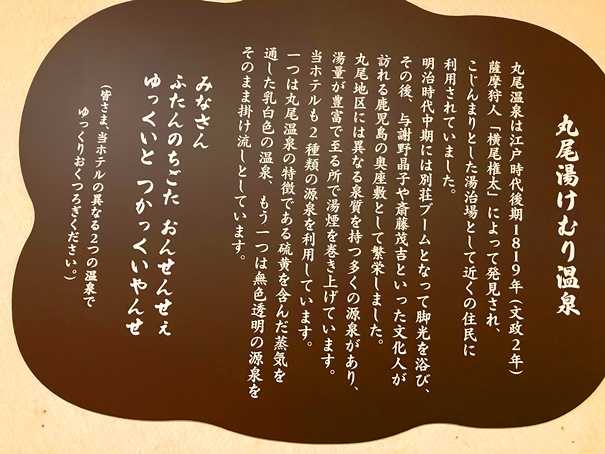 丸尾湯けむり温泉
丸尾温泉は江戸時代後期1819年(文政2年)
薩摩狩人「横尾権太」によって発見され、
こじんまりとした湯治場として近くの住民に
利用されていました。
明治時代中期には別荘ブームとなって脚光を浴び、
その後、与謝野晶子や斎藤茂吉といった文化人が
訪れる鹿児島の奥座敷として繁栄しました。
丸尾地区には異なる泉質を持つ多くの源泉があり、
湯量が豊富で至る所で湯煙を巻き上げています。
当ホテルも2種類の源泉を利用しています。
一つは丸尾温泉の特徴である硫黄を含んだ蒸気を
通した乳白色の温泉、もう一つは無色透明の源泉を
そのまま掛け流しとしています。
みなさん
ふたんのちごた おんせんせぇ
ゆっくいと つかっくいやんせ
(皆さま、当ホテルの異なる2つの温泉で
ゆっくりおくつろぎください。)